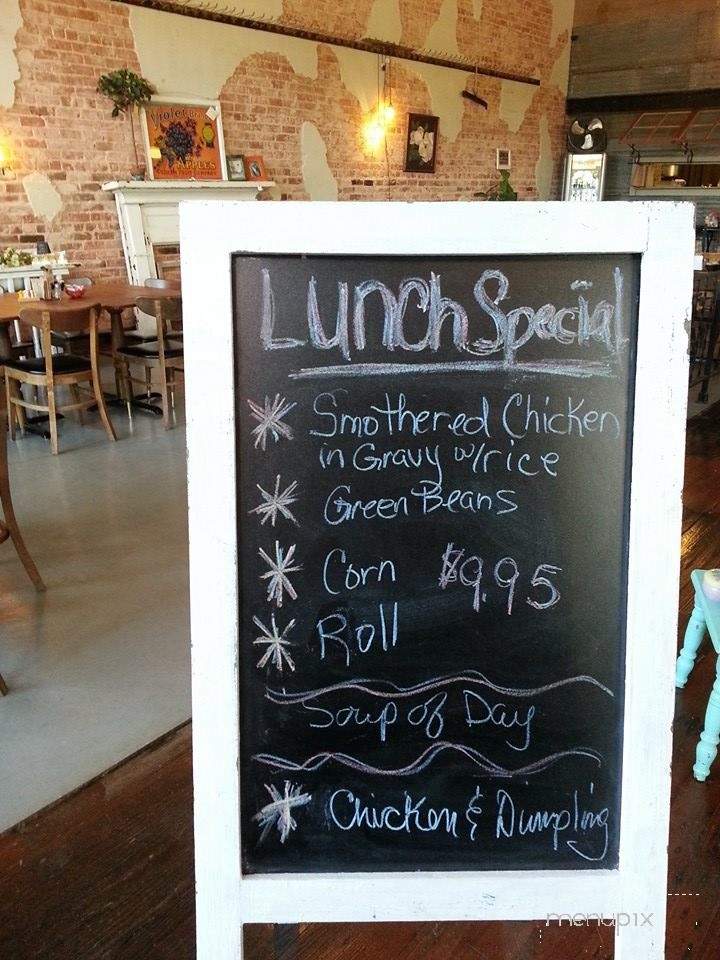 Violet
APPLES
Lunch Special
Smothered Chicken
in Gravy w/rice
Green Beans
Corn $9.95
Roll
Soup of Day
Chicken & Dumpling
menupix